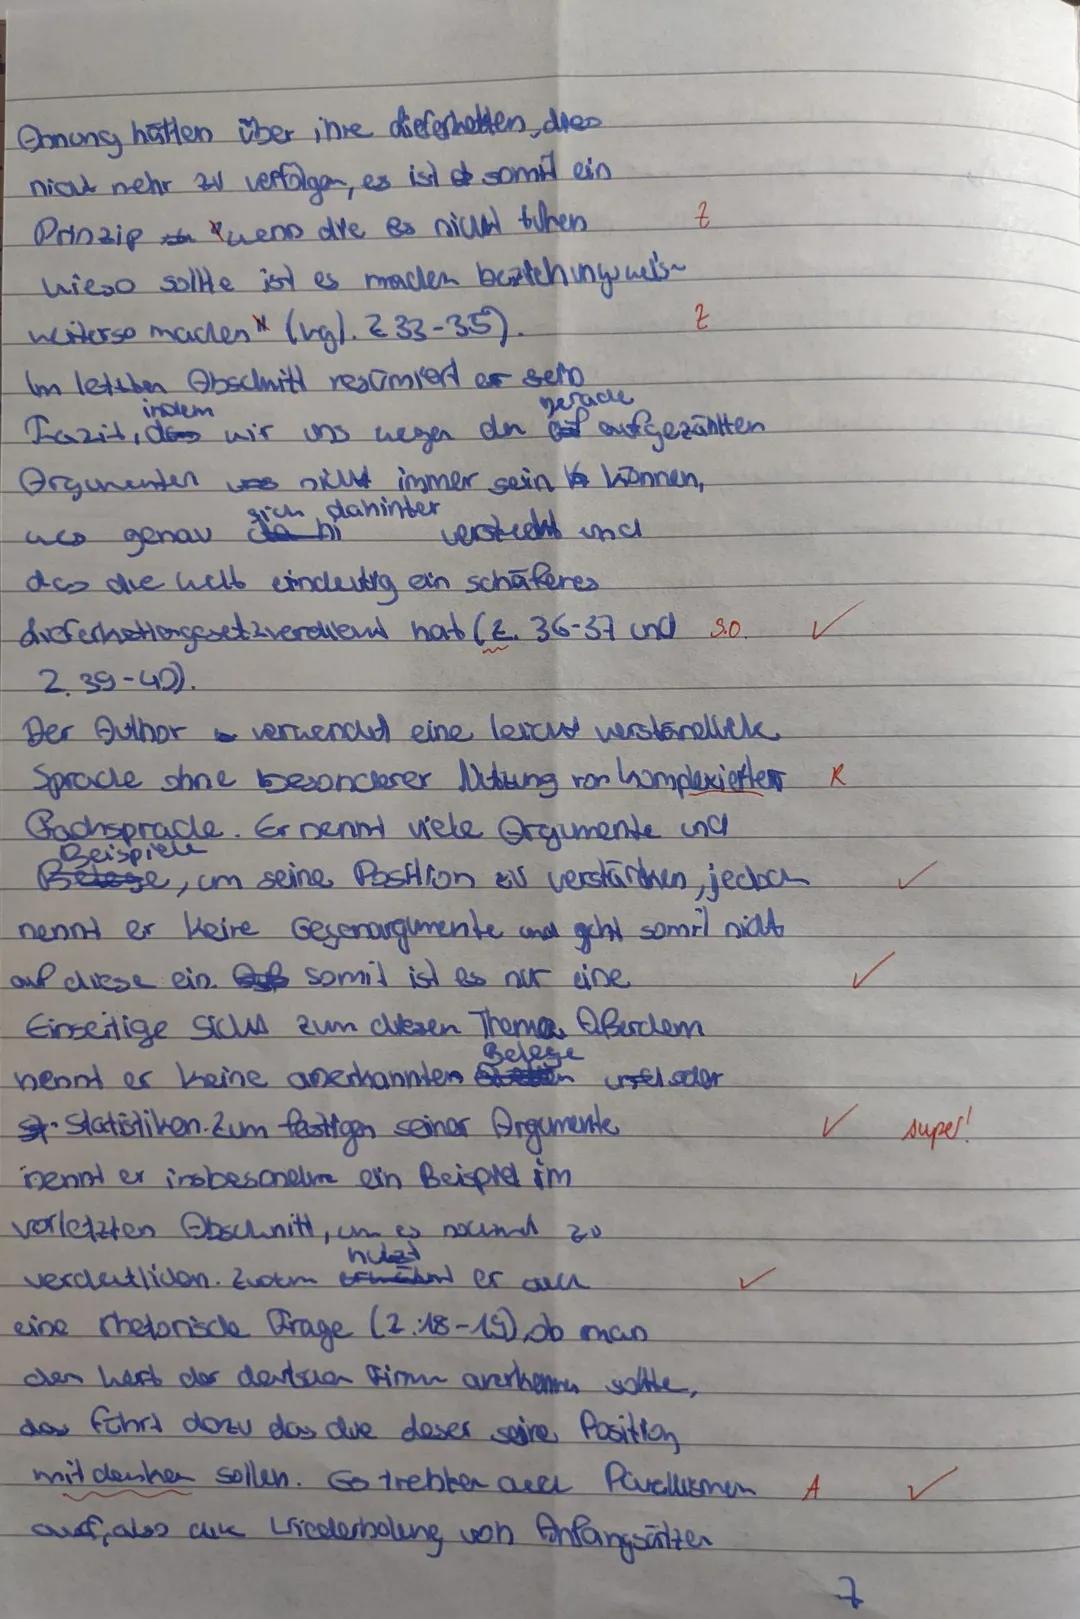 Ahnung hätten über ihre Lieferketten, dies
nicht mehr zu verfolgen, es ist somit ein
Prinzip "wenn die es nicht tuhen Z
wieso sollte ist es machen beziehungsweis~
weiterso machen" (vgl. Z 33-35). Z
Im letzten Abschnitt resümiert er sein
Fazit, indem wir uns wegen den gerade aufgezählten
Argumenten nicht immer sein können,
was genau sich dahinter versteckt und
das die Welt eindeutig ein schäferes
Lieferkettengesetz verdient hat (Z. 36-37 und s.o. ✓
Z. 39-40).
Der Author verwendet eine leicht verständliche
Sprache ohne besonderer Nutzung von komplexietter R
Fachsprache. Er nennt viele Argumente und
Beispiele, um seine Position zu verstärken, jedoch ✓
nennt er keine Gegenargumente und geht somit nicht
auf diese ein. somit ist es nur eine ✓
Einseitige Sicht zum diesen Thema. Außerdem
nennt er keine anerkannten Belege oder
Statistiken. Zum festigen seiner Argumente ✓ super!
nennt er insbesondere ein Beispiel im
vorletzten Abschnitt, um es nochmal zu
verdeutlichen. Zudem nutzt er auch ✓
eine rhetorische Frage (Z.18-19), ob man
den Wert der deutschen Firmen anerkennen sollte,
das führt dazu das die Leser seine Position
mit denken sollen. Es tretten auch Parallismen A ✓
auf, also die Wiederholung von Anfangsätzen
7